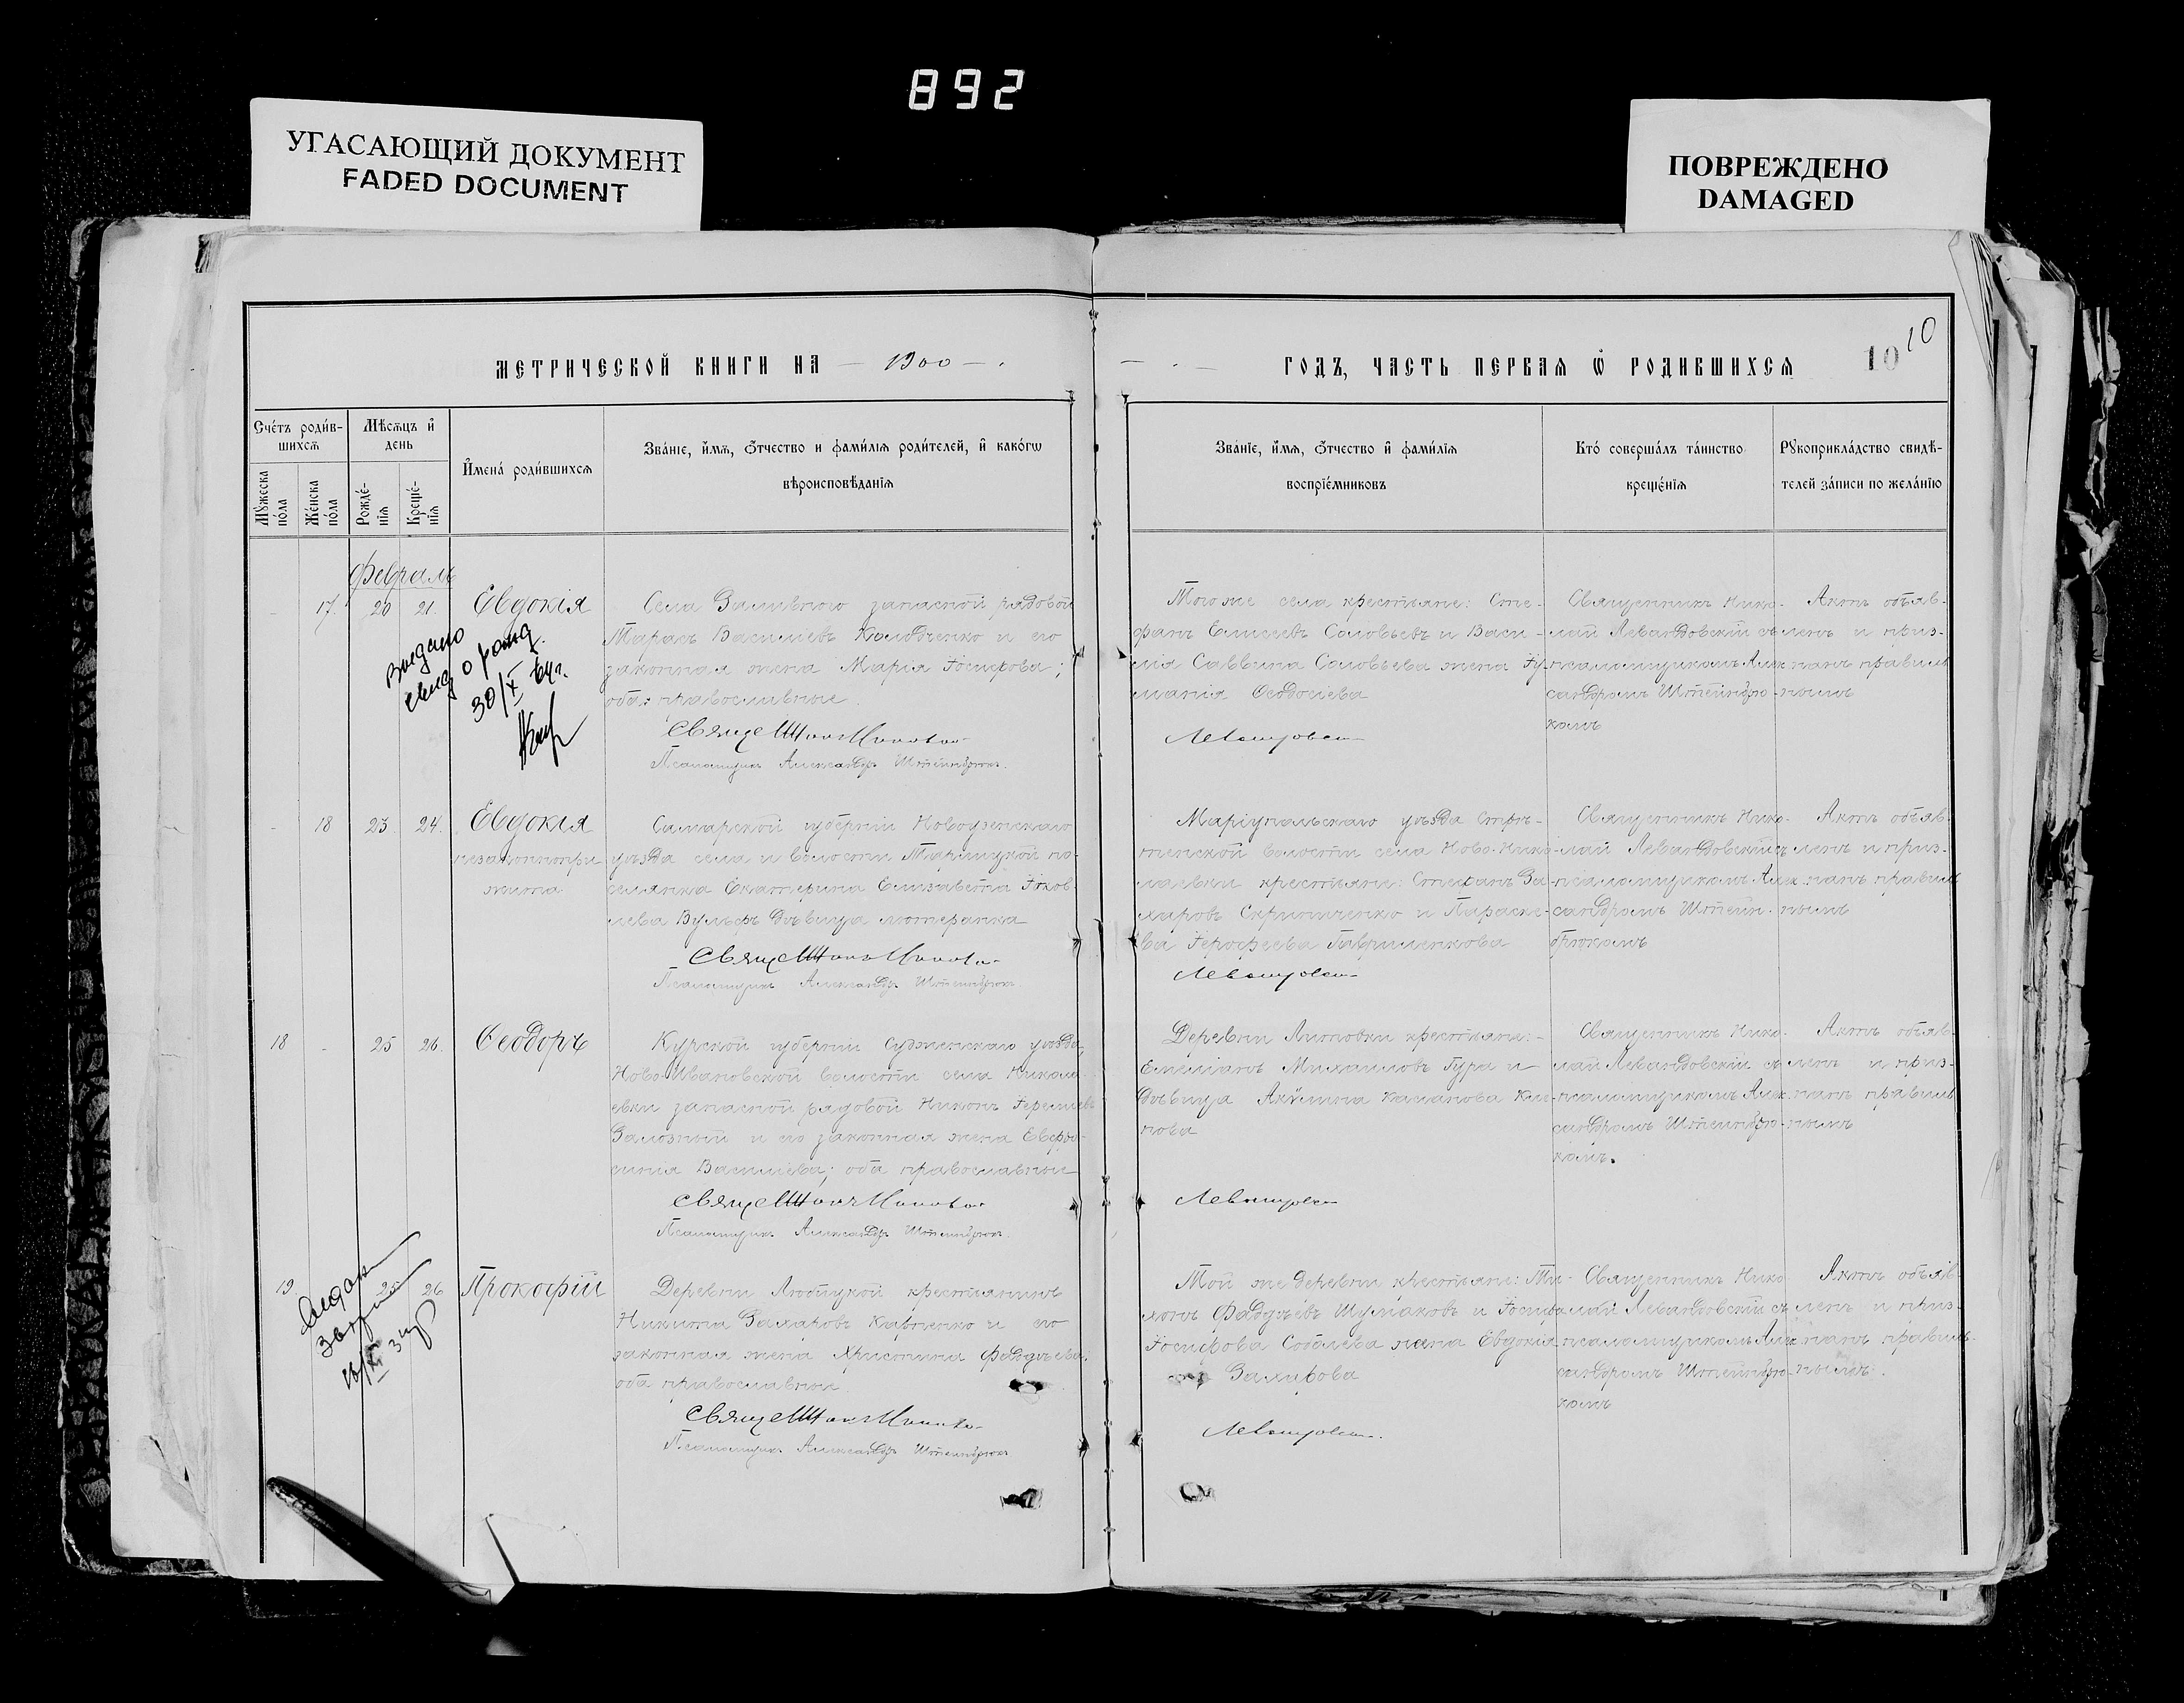 892
УГАСАЮЩИЙ ДОКУМЕНТ
FADED DOCUMENT
ПОВРЕЖДЕНО
DAMAGED
МЕТРИЧЕСКОЙ КНИГИ НА — 1900 — .
— . — ГОДЪ, ЧАСТЬ ПЕРВАЯ Ѿ РОДИВШИХСЯ
10 10
Сче́тъ роди́в-
шихсѧ
Мꙋжеска по́ла
Же́нска по́ла
Мѣсѧцъ и҆ день
Рожде́-
нїѧ
Креще́-
нїѧ
И҆мена̀ роди́вшихсѧ
Зва́нїе, и҆́мѧ, ѻ҆́тчество и фами́лїѧ роди́телей, и҆ како́гѡ
вѣроисповѣ́данїѧ
Зва́нїе, и҆́мѧ, ѻ҆́тчество и҆ фами́лїѧ
воспрїе́мниковъ
Кто̀ соверша́лъ та́инство
креще́нїѧ
Рꙋкоприкла́дство свидѣ́-
телей за́писи по жела́нїю
Февраль
- 17. 20 21. Евдокія
Села Заливного запасной рядовой
Тарасъ Василіевъ Колодченко и его
законная жена Марія Іосифова;
оба православные.
Псаломщикъ Александръ Штейнбрюкъ.
Того же села крестьяне: Сте-
фанъ Елисеевъ Соловьевъ и Васи-
лія Саввина Соловьева жена Іу-
ліанія Ѳеодосіева
Священникъ Нико-
лай Левандовскій съ
псаломщикомъ Алек-
сандромъ Штейнбрю-
комъ
Актъ объяв-
ленъ и приз-
нанъ правиль
нымъ
выдано
свид о рожд.
30/X 64г.
- 18 23 24. Евдокія
незаконнопри
жита
Самарской губерніи Новоузенскаго
уѣзда села и волости Тарлыцкой по-
селянка Екатерина Елизавета Іаков-
лева Вульфъ дѣвица лютеранка
Псаломщикъ Александръ Штейнбрюкъ.
Маріупольскаго уѣзда Стрѣ-
тенской волости села Ново-Нико-
лаевки крестьяне: Стефанъ За-
харовъ Скрипченко и Параске-
ва Іерофеева Гавриленкова
Священникъ Нико-
лай Левандовскій съ
псаломщикомъ Алек-
сандромъ Штейн-
брюкомъ
Актъ объяв-
ленъ и приз-
нанъ правиль
нымъ
18 - 25 26. Ѳеодоръ
Курской губерніи Судженскаго уѣзда,
Ново-Ивановской волости села Никола-
евки запасной рядовой Никонъ Іереміевъ
Залозный и его законная жена Евфро-
синія Василіева; оба православные
Псаломщикъ Александръ Штейнбрюкъ.
Деревни Липовки крестьяне:
Емеліанъ Михаиловъ Гура и
дѣвица Акѵлина
нова
Священникъ Нико-
лай Левандовскій съ
псаломщикомъ Алек-
сандромъ Штейнбрю-
комъ.
Актъ объяв-
ленъ и приз-
нанъ правиль
нымъ
19. 25 26 Прокофій
Деревни Любицкой крестьянинъ
Никита Захаровъ Карпенко и его
законная жена Христина Фаддѣева;
оба православные
Псаломщикъ Александръ Штейнбрюкъ
Той же деревни крестьяне: Ти-
хонъ Фаддѣевъ Шумаковъ и Іосифа
Іосифова Соболева жена Евдокія
Захарова
Священникъ Нико
лай Левандовскій съ
псаломщикомъ Алек
сандромъ Штейнбрю-
комъ
Актъ объяв
ленъ и приз-
нанъ правиль-
нымъ.